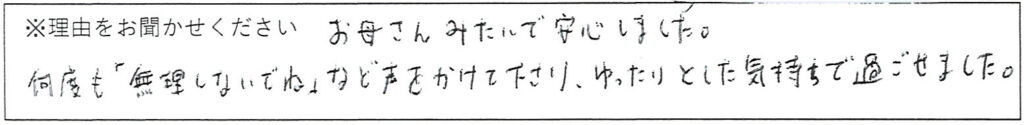 ※理由をお聞かせください お母さんみたいで安心しました。
何度も「無理しないでね」など声をかけて下さり、ゆったりとした気持ちで過ごせました。